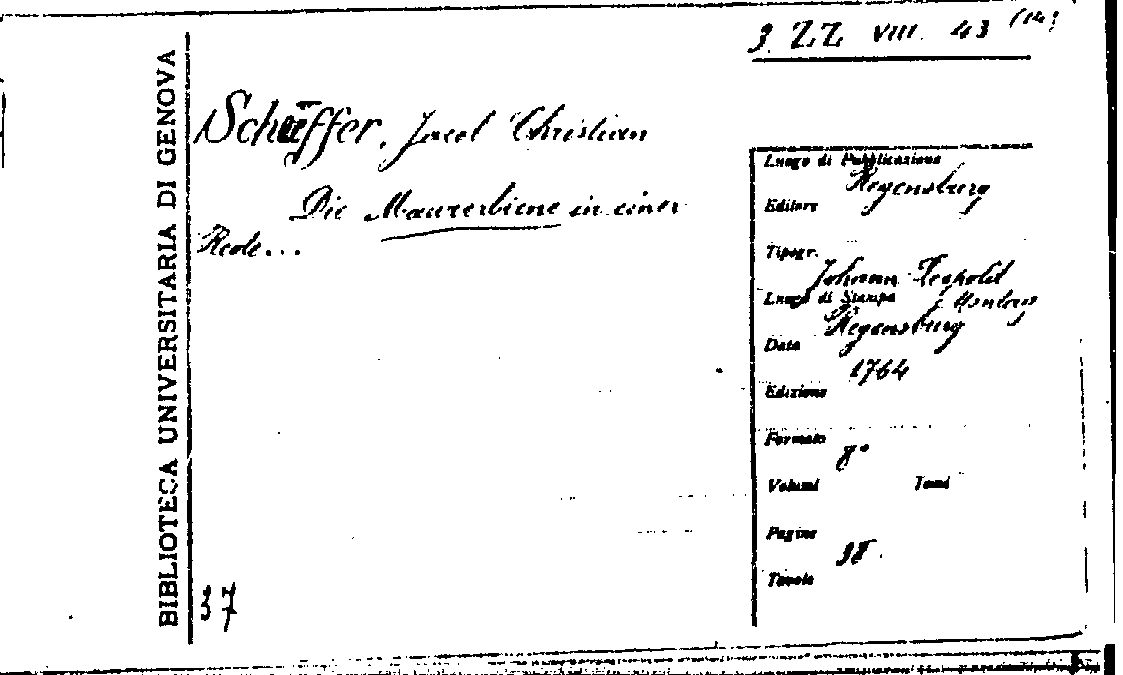 3 ZZ VIII. 43 (14)
BIBLIOTECA UNIVERSITARIA DI GENOVA
Schäffer, Jacob Christian
Die Maurerbiene in einer
Rede...
37
Luogo di Pubblicazione
Regensburg
Editore
Tipogr.
Johann Leopold
Luogo di Stampa
Regensburg
Data
1764
Edizione
Formato
8°
Volumi Tomi
Pagine
38.
Tavole